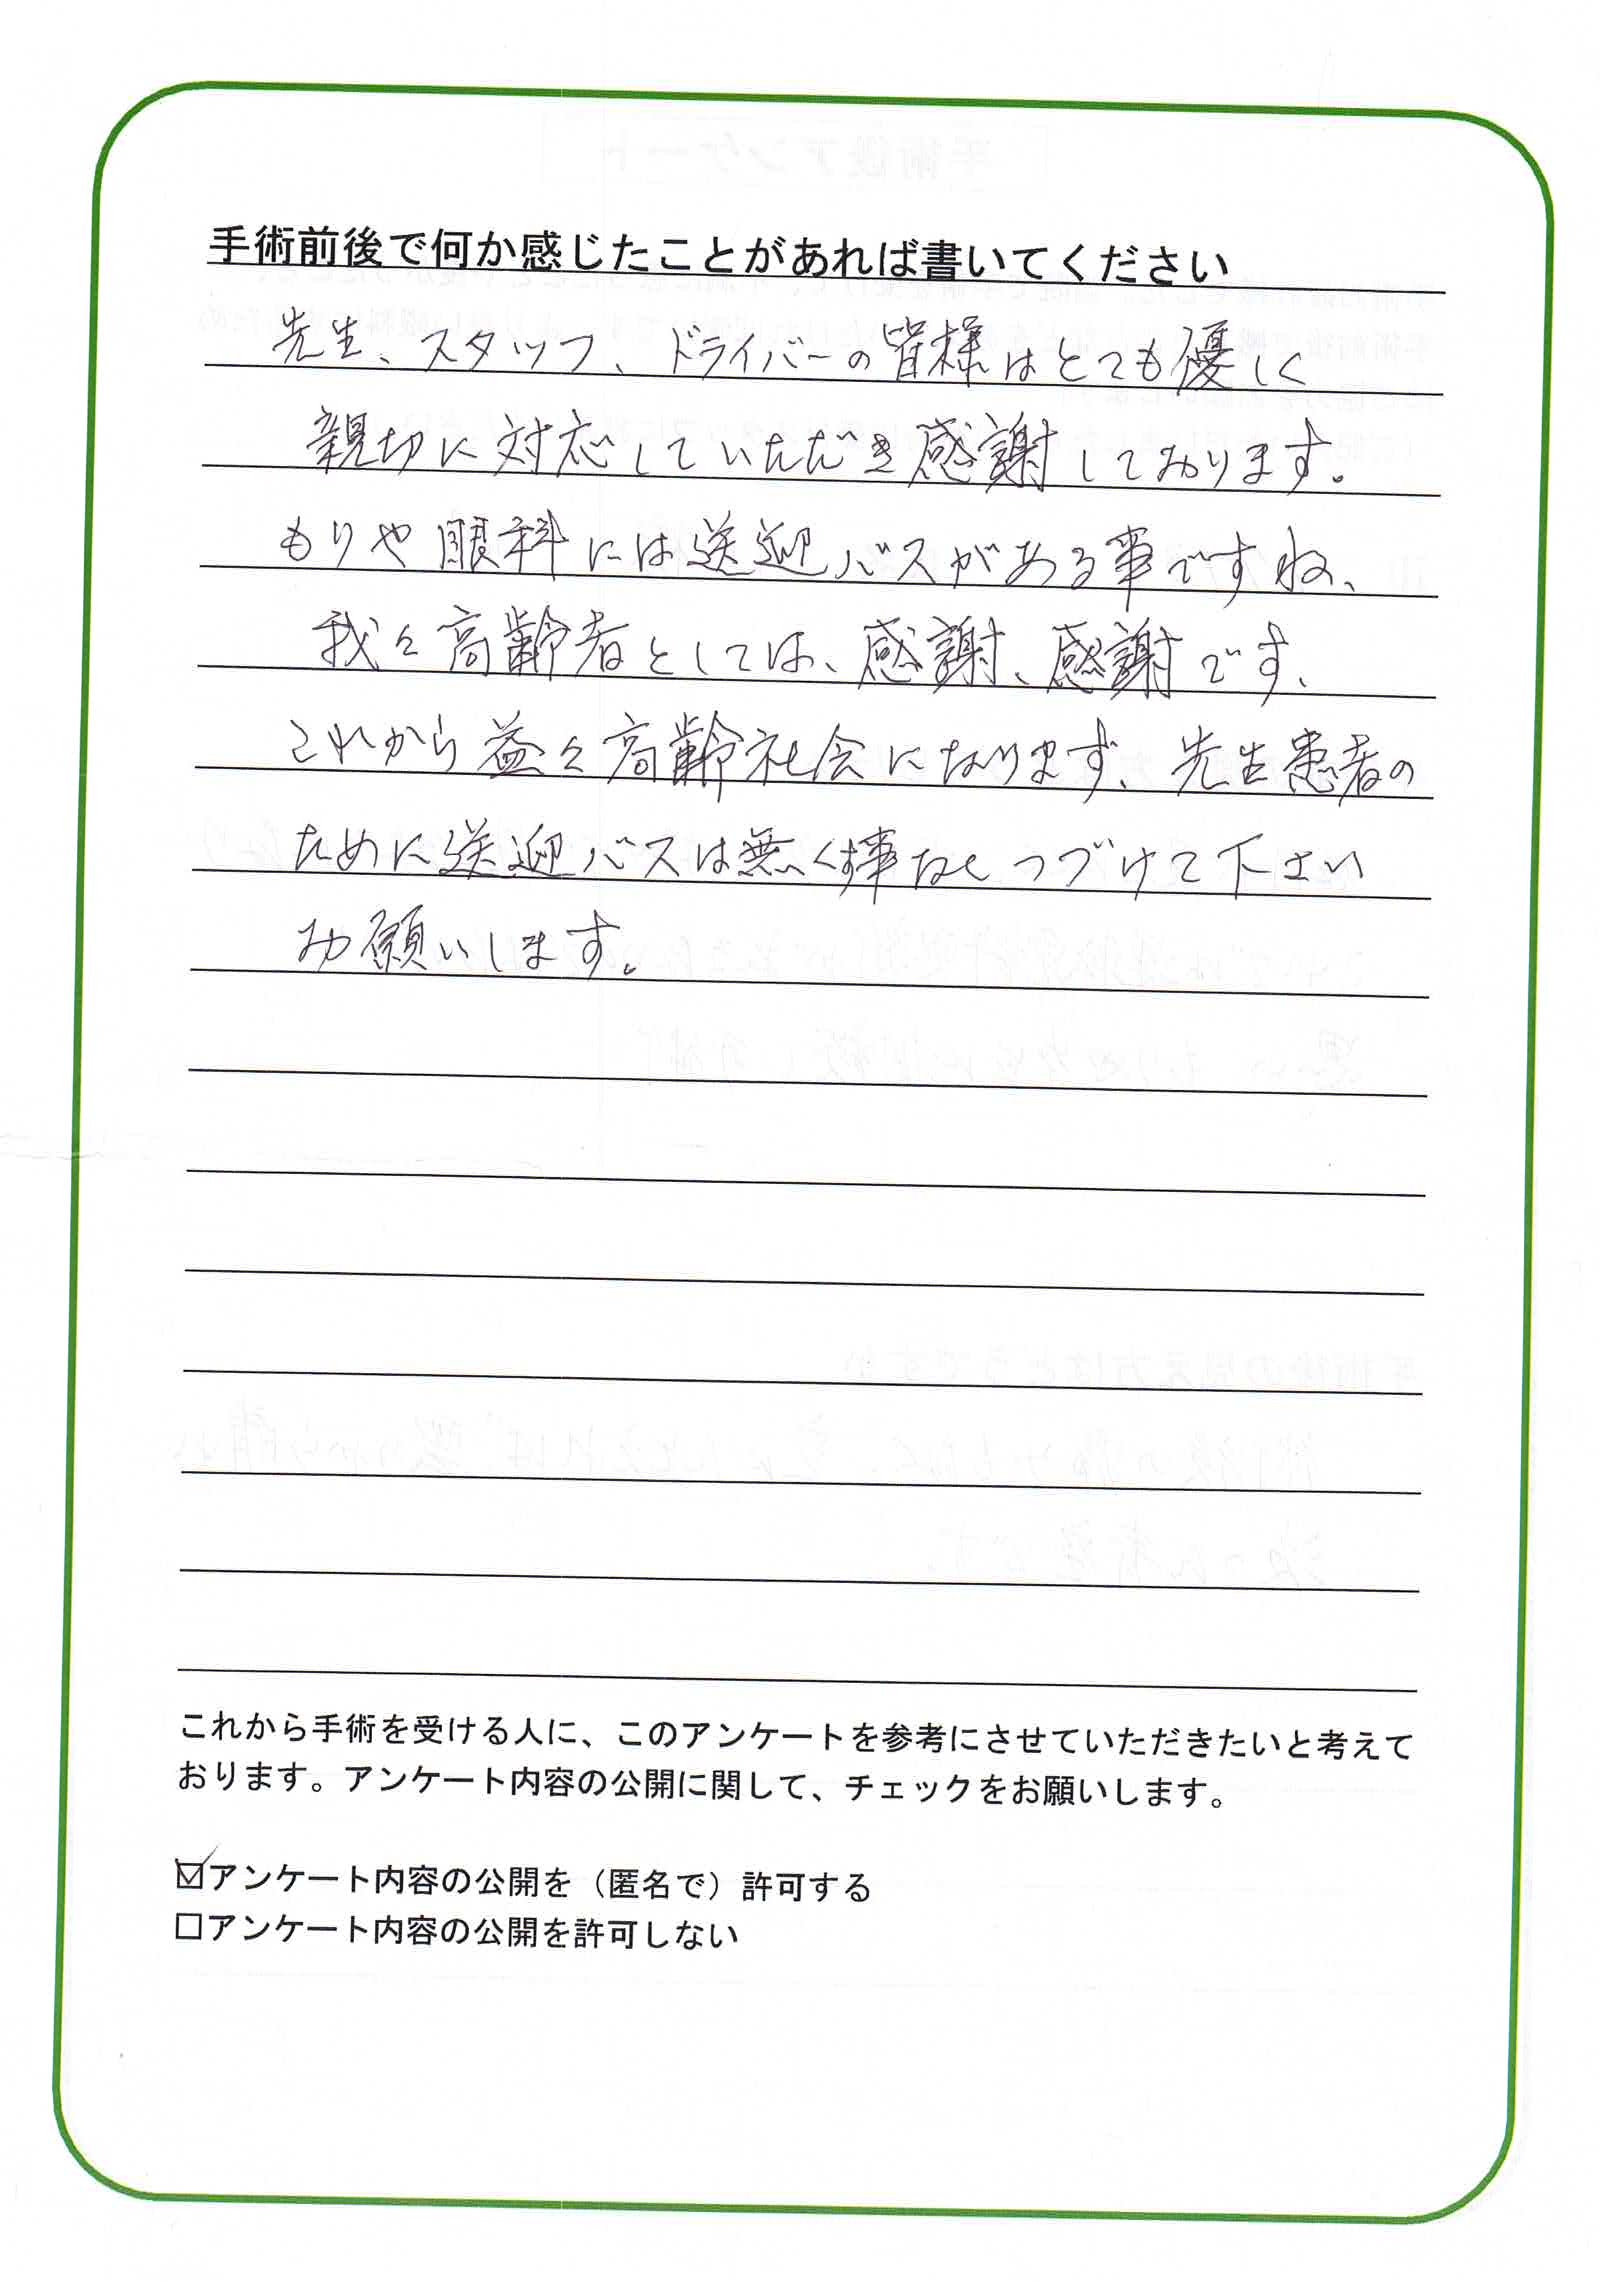 手術前後で何か感じたことがあれば書いてください
先生、スタッフ、ドライバーの皆様はとても優しく
親切に対応していただき感謝しております。
もりや眼科には送迎バスがある事ですね、
我々高齢者としては、感謝、感謝です、
これから益々高齢社会になります、先生患者の
ために送迎バスは無くす事なしつづけて下さい
お願いします。
これから手術を受ける人に、このアンケートを参考にさせていただきたいと考えて
おります。アンケート内容の公開に関して、チェックをお願いします。
☑アンケート内容の公開を（匿名で）許可する
□アンケート内容の公開を許可しない